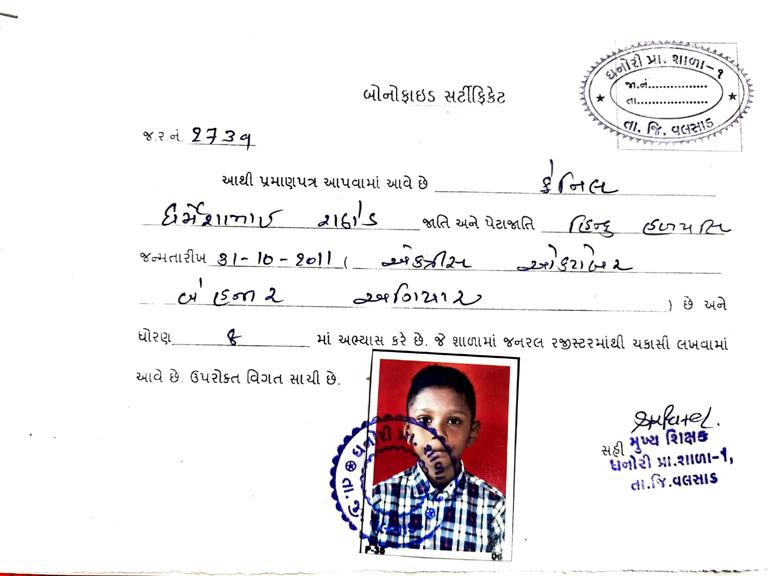 ધનોરી પ્રા. શાળા-૧
જા.નં................
તા...................
તા. જિ. વલસાડ
બોનોફાઇડ સર્ટીફિકેટ
જ.ર.નં. ૨૭૩૧
આથી પ્રમાણપત્ર આપવામાં આવે છે કેનિલ
ધર્મેશભાઈ રાઠોડ જાતિ અને પેટાજાતિ હિન્દુ હળપતિ
જન્મતારીખ ૩૧-૧૦-૨૦૧૧ ( એકત્રીસ ઓકટોબર
બે હજાર અગિયાર ) છે અને
ધોરણ ૬ માં અભ્યાસ કરે છે. જે શાળામાં જનરલ રજીસ્ટરમાંથી ચકાસી લખવામાં
આવે છે. ઉપરોક્ત વિગત સાચી છે.
ધનોરી પ્રા. શાળા
તા. જી. વલસાડ
સહી મુખ્ય શિક્ષક
ધનોરી પ્રા.શાળા-૧,
તા.જિ.વલસાડ